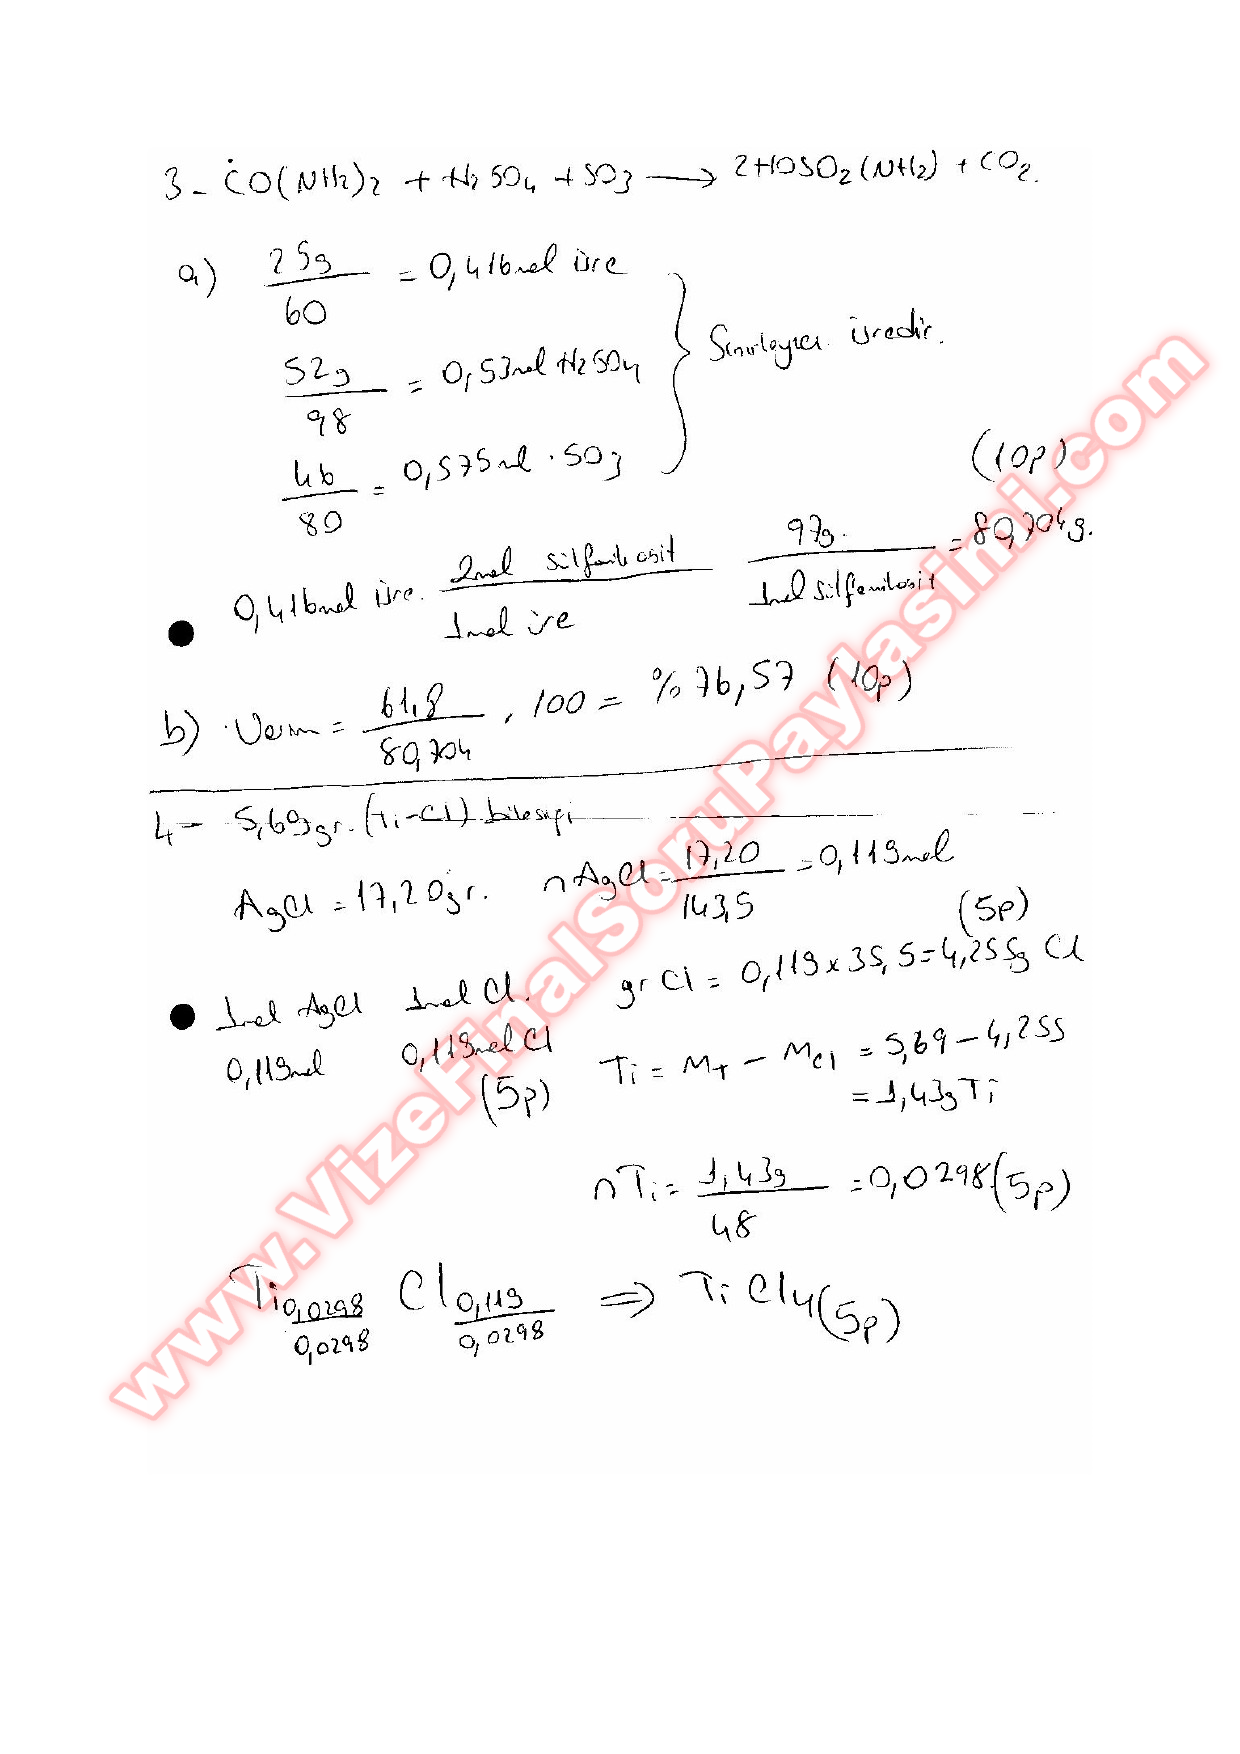 3- CO(NH2)2 + H2SO4 + SO3 → 2HOSO2(NH2) + CO2.
a) 25g/60 = 0,416mol üre
52g/98 = 0,53mol H2SO4
46/80 = 0,575mol. SO3
Sınırlayıcı üredir.
(10p)
0,416mol üre. 2mol sülfamikasit/1mol üre 97g./1mol sülfamikasit = 80,704g.
b) Verim = 61,8/80,704 . 100 = %76,57 (10p)
4- 5,69gr. (Ti-Cl) bileşiği
AgCl = 17,20gr. nAgCl = 17,20/143,5 = 0,119mol
(5p)
1mol AgCl 1mol Cl. gr Cl = 0,119x35,5=4,255g Cl
0,119mol 0,119mol Cl (5p)
Ti = MT - MCl = 5,69-4,255
=1,43gTi
nTi = 1,43g/48 = 0,0298 (5p)
Ti0,0298/0,0298 Cl0,119/0,0298 ⇒ TiCl4 (5p)
www.VizeFinalSoruPaylasimi.com